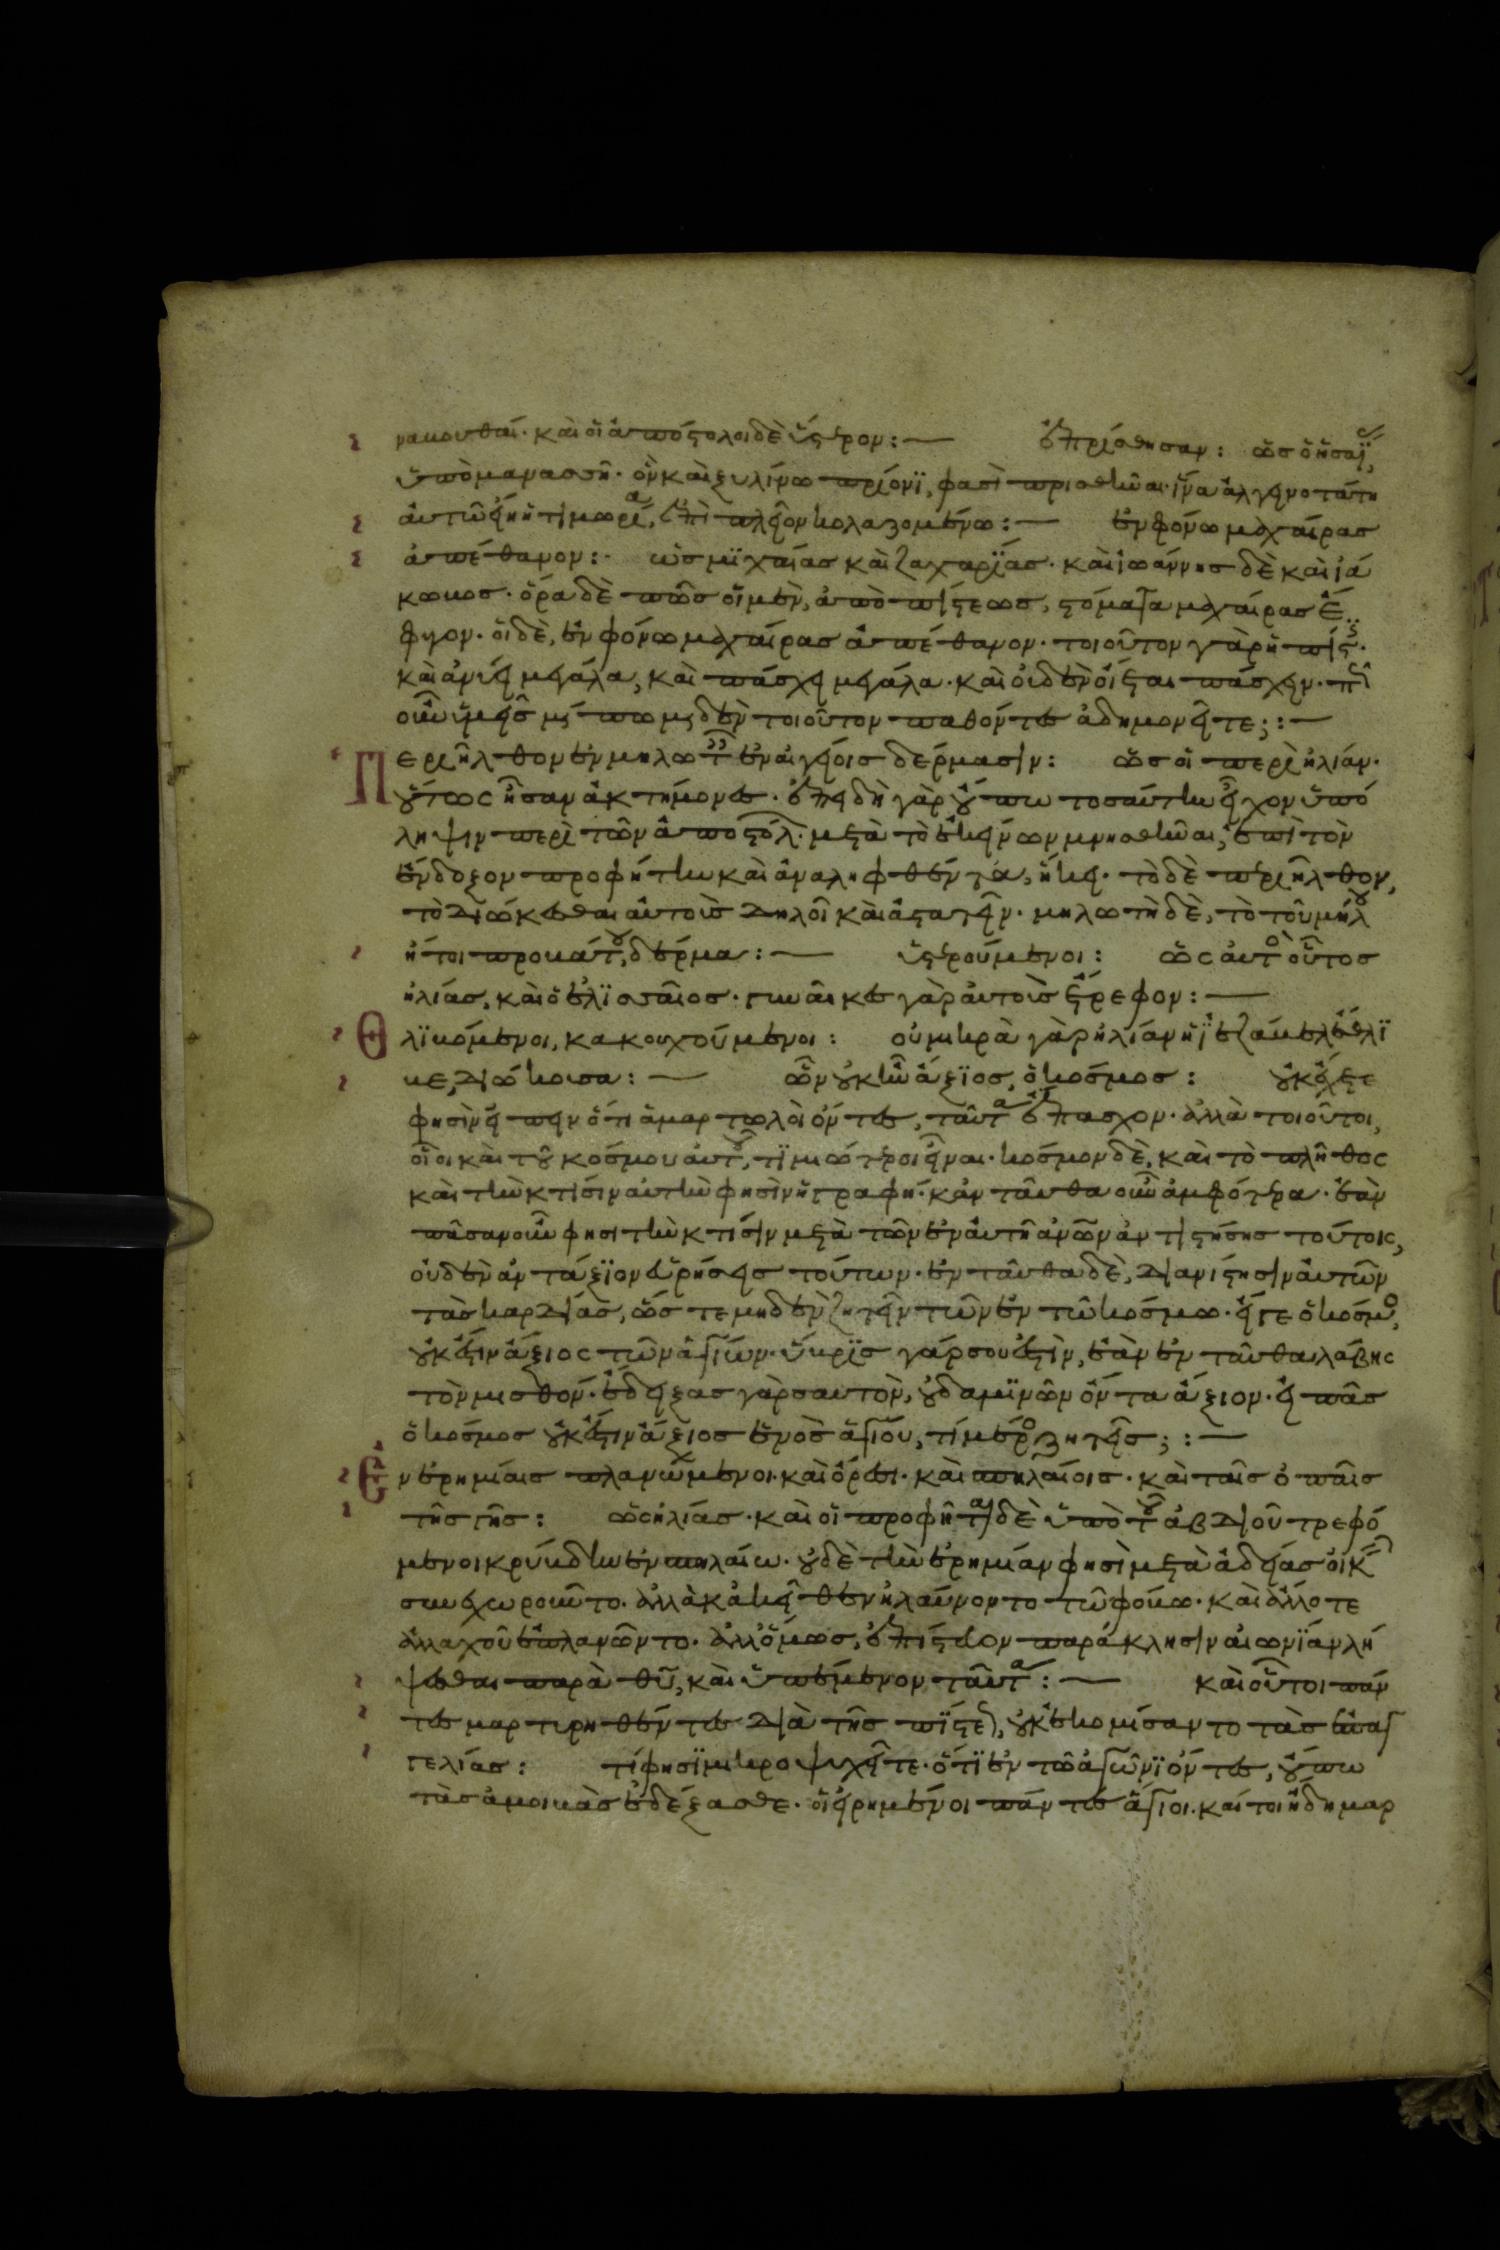 νακουθαί· καὶ οἱ ἀπόστολοι δὲ ὕστερον:— ἐπρίσθησαν: ὡς ὁ ἡσαΐ
ὑπὸ μανασσῆ· ὃν καὶ ξυλίνω πρίονϊ, φασὶ πρισθῆναι· ἵνα ἀλγεινοτάτη
ἀυτῶ εἴη ἡ τιμωρία, ἐπὶ πλεῖον κολαζομένω:— ἐν φόνω μαχαίρας
ἀπέθανον:· ὡς μϊχαίας καὶ ζαχαρΐας· καὶ ἰωάννης δὲ καὶ ϊά
κωβος· ὅρα δὲ πῶς οἱ μὲν, ἀπὸ πίστεως, στόματα μαχαίρας ἔ
φυγον· οἱ δὲ, ἐν φόνω μαχαίρας ἀπέθανον· τοιοῦτον γὰρ ἡ πίστ·
καὶ ἀνύει μεγάλα, καὶ πάσχει μεγάλα· καὶ οὐδὲν οἴεται πάσχειν· πῶς
οὖν ὑμεῖς μήπω μηδὲν τοιοῦτον παθόντες ἀδημονεῖτε;:—
Περιῆλθον ἐν μηλωτ ἐν αἰγείοις δέρμασιν: ὡς οἱ περὶ ἠλιάν·
οὕτως ἦσαν ἀκτήμονες· ἐπειδὴ γὰρ οὔπω τοσαύτην εἶχον ὑπό
ληψιν περὶ τῶν ἀποστόλ· μετὰ τὸ ἐκείνων μνησθῆναι, ἐπὶ τὸν
ἔνδοξον προφήτην καὶ ἀναληφθέντα, ἥκει· τὸ δὲ περιῆλθον,
τὸ διώκεσθαι ἀυτοὺς δηλοῖ καὶ ἀστατεῖν· μηλωτὴ δὲ, τὸ τοῦ μήλου
ἤτοι προβάτου, δέρμα:— ὑστερούμενοι: ὡς ἀυτὸ οὗτος
ἠλιάς, καὶ ὁ ἐλϊσσαῖος· γυναῖκες γὰρ ἀυτοὺς ἔτρεφον:—
Θλϊβόμενοι, κακουχούμενοι: οὐ μικρὰ γὰρ ἠλίαν ἡ ϊεζάβελ ἔθλϊ
βε, διώκουσα:— ὧν οὐκ ἦν ἄξϊος, ὁ κόσμος: οὐκ ἔχετε
φησὶν εἰπεῖν ὅτι ἁμαρτωλοὶ ὄντες, ταῦτα ἔπασχον· ἀλλὰ τοιοῦτοι,
οἷοι καὶ τοῦ κόσμου ἀυτοῦ, τϊμιώτεροι εἶναι· κόσμον δὲ, καὶ τὸ πλῆθος
καὶ τὴν κτίσιν ἀυτὴν φησὶν ἡ γραφή· κἀνταῦθα οὖν ἀμφότερα· ἐὰν
πᾶσαν οὖν φησι τὴν κτίσιν μετὰ τῶν ἐν ἀυτῆ ἀνων ἀντιστήσης τούτοις,
οὐδὲν ἀντάξϊον εὑρήσεις τούτων· ἐνταῦθα δὲ, διανίστησιν ἀυτῶν
τὰς καρδίας, ὥστε μηδὲν ζητεῖν τῶν ἐν τῶ κόσμω· εἴγε ὁ κόσμο,
οὐκ ἔστιν ἄξιος τῶν ἁγίων· ὕβρϊς γάρ σου ἐστὶν, ἐὰν ἐνταῦθα λάβης
τὸν μισθόν· ἔδειξας γὰρ σαυτὸν, οὐδαμϊνῶν ὄντα ἄξιον· εἰ πᾶς
ὁ κόσμος οὐκ ἔστιν ἄξιος ἑνὸς ἁγίου, τί μέρο ζητεῖς;:—
Ἐν ἐρημίαις πλανώμενοι· καὶ ὄρεσι· καὶ σπηλαίοις· καὶ ταῖς ὀπαῖς
τῆς γῆς: ὡς ἠλίας· καὶ οἱ προφῆται δὲ ὑπὸ τοῦ ἀβδιοῦ τρεφό
μενοι κρύβδην ἐν σπηλαίω· οὐδὲ τὴν ἐρημίαν φησὶ μετὰ ἀδείας οἰκ
συνεχωροῦντο· ἀλλὰ κἀκεῖθεν ἠλαύνοντο τῶ φόβω· καὶ ἄλλοτε
ἀλλαχοῦ ἐπλανῶντο· ἀλλ' ὅμως, ἐπίστευον παράκλησιν αἰωνϊαν λή
ψεσθαι παρὰ θυ, καὶ ὑπέμενον ταῦτα:— καὶ οὗτοι πάν
τες μαρτυρηθέντες διὰ τῆς πϊστε, οὐκ ἐκομίσαντο τὰς ἐπαγ
γελίας: τί φησϊ μικροψυχεῖτε· ὅτϊ ἐν τῶ ἀγῶνϊ ὄντες, οὔπω
τὰς ἀμοιβὰς ἐδέξασθε· οἱ εἰρημένοι πάντες ἅγιοι· καίτοι ἤδη μαρ